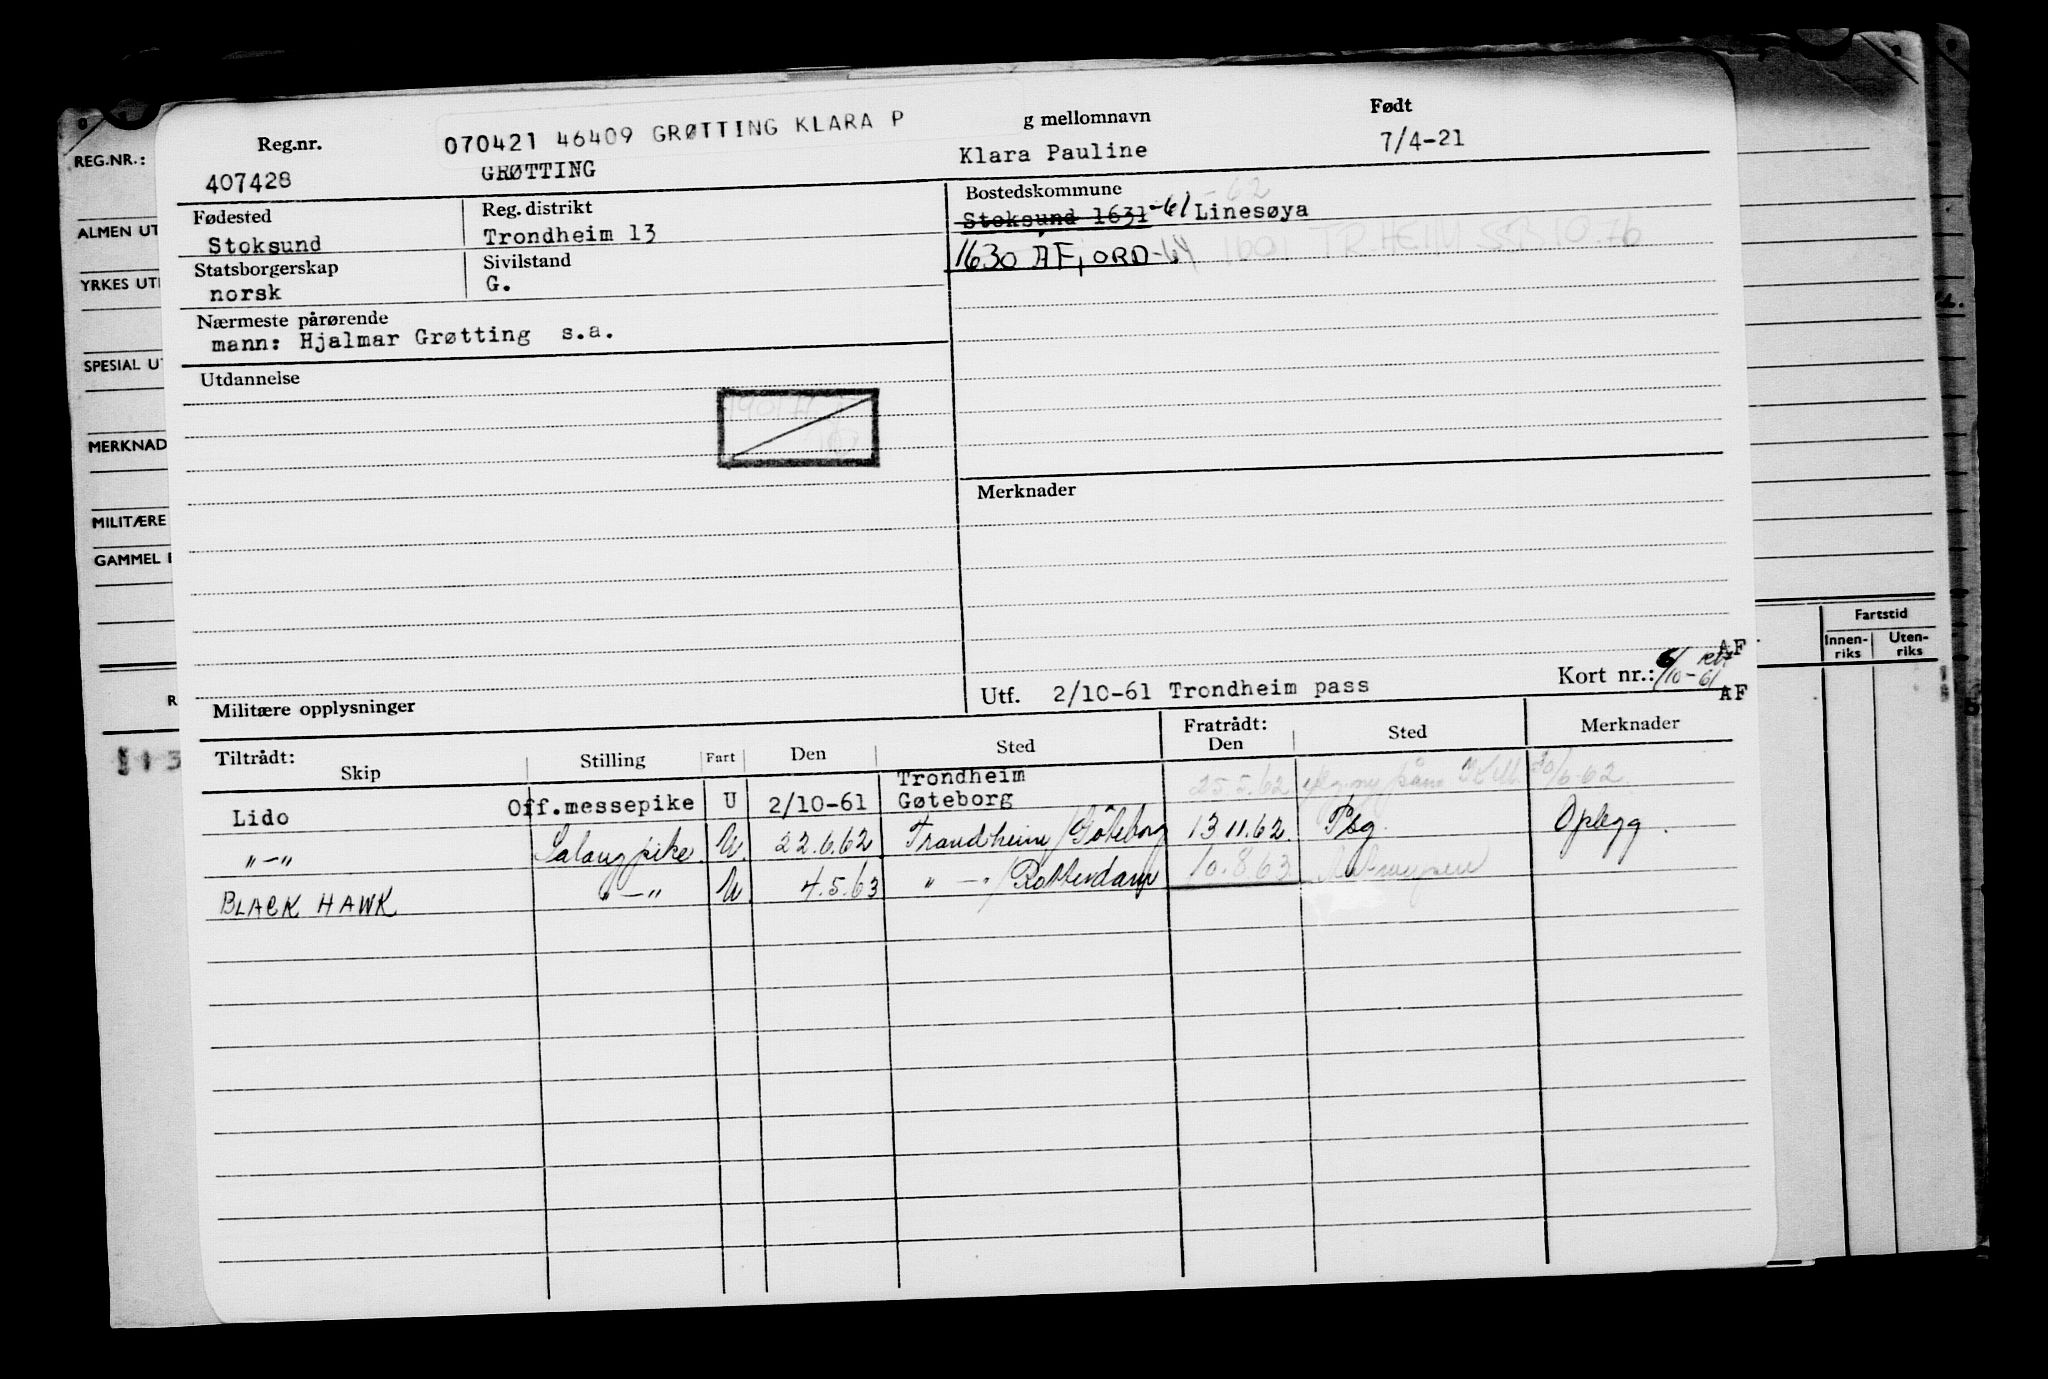 070421 46409 GRØTTING KLARA P
Reg.nr.
g mellomnavn
Født
407428
GRØTTING
Klara Pauline
7/4-21
Fødested
Reg. distrikt
Bostedskommune
62
Stoksund
Trondheim 13
Stoksund 1631 -61 Linesøya
Statsborgerskap
Sivilstand
1630 ÅFJORD-64 1601 TR.HEIM 10.76
norsk
G.
Nærmeste pårørende
mann: Hjalmar Grøtting s.a.
Utdannelse
Merknader
Militære opplysninger
Utf. 2/10-61 Trondheim pass
Kort nr.: 6/10-61
AF
AF
Tiltrådt:
Skip
Stilling
Fart
Den
Sted
Fratrådt:
Den
Sted
Merknader
Lido Off.messepike U 2/10-61 Trondheim Gøteborg 25.5.62 20/6-62
"-" Salongpike U 22.6.62 Trondheim/Göteborg 13 11.62 Psg. Oplegg.
BLACK HAWK "-" U 4.5.63 "-"/Rotterdam 10.8.63
REG.NR.:
ALMEN UT
YRKES UT
SPESIAL UT
MERKNAD
MILITÆRE
GAMMEL
R
Fartstid
Innen-riks
Uten-riks